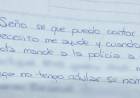 Seño se que puedo contar
necesito me ayude y cuando
mande a la policía a
no tengo adultos se